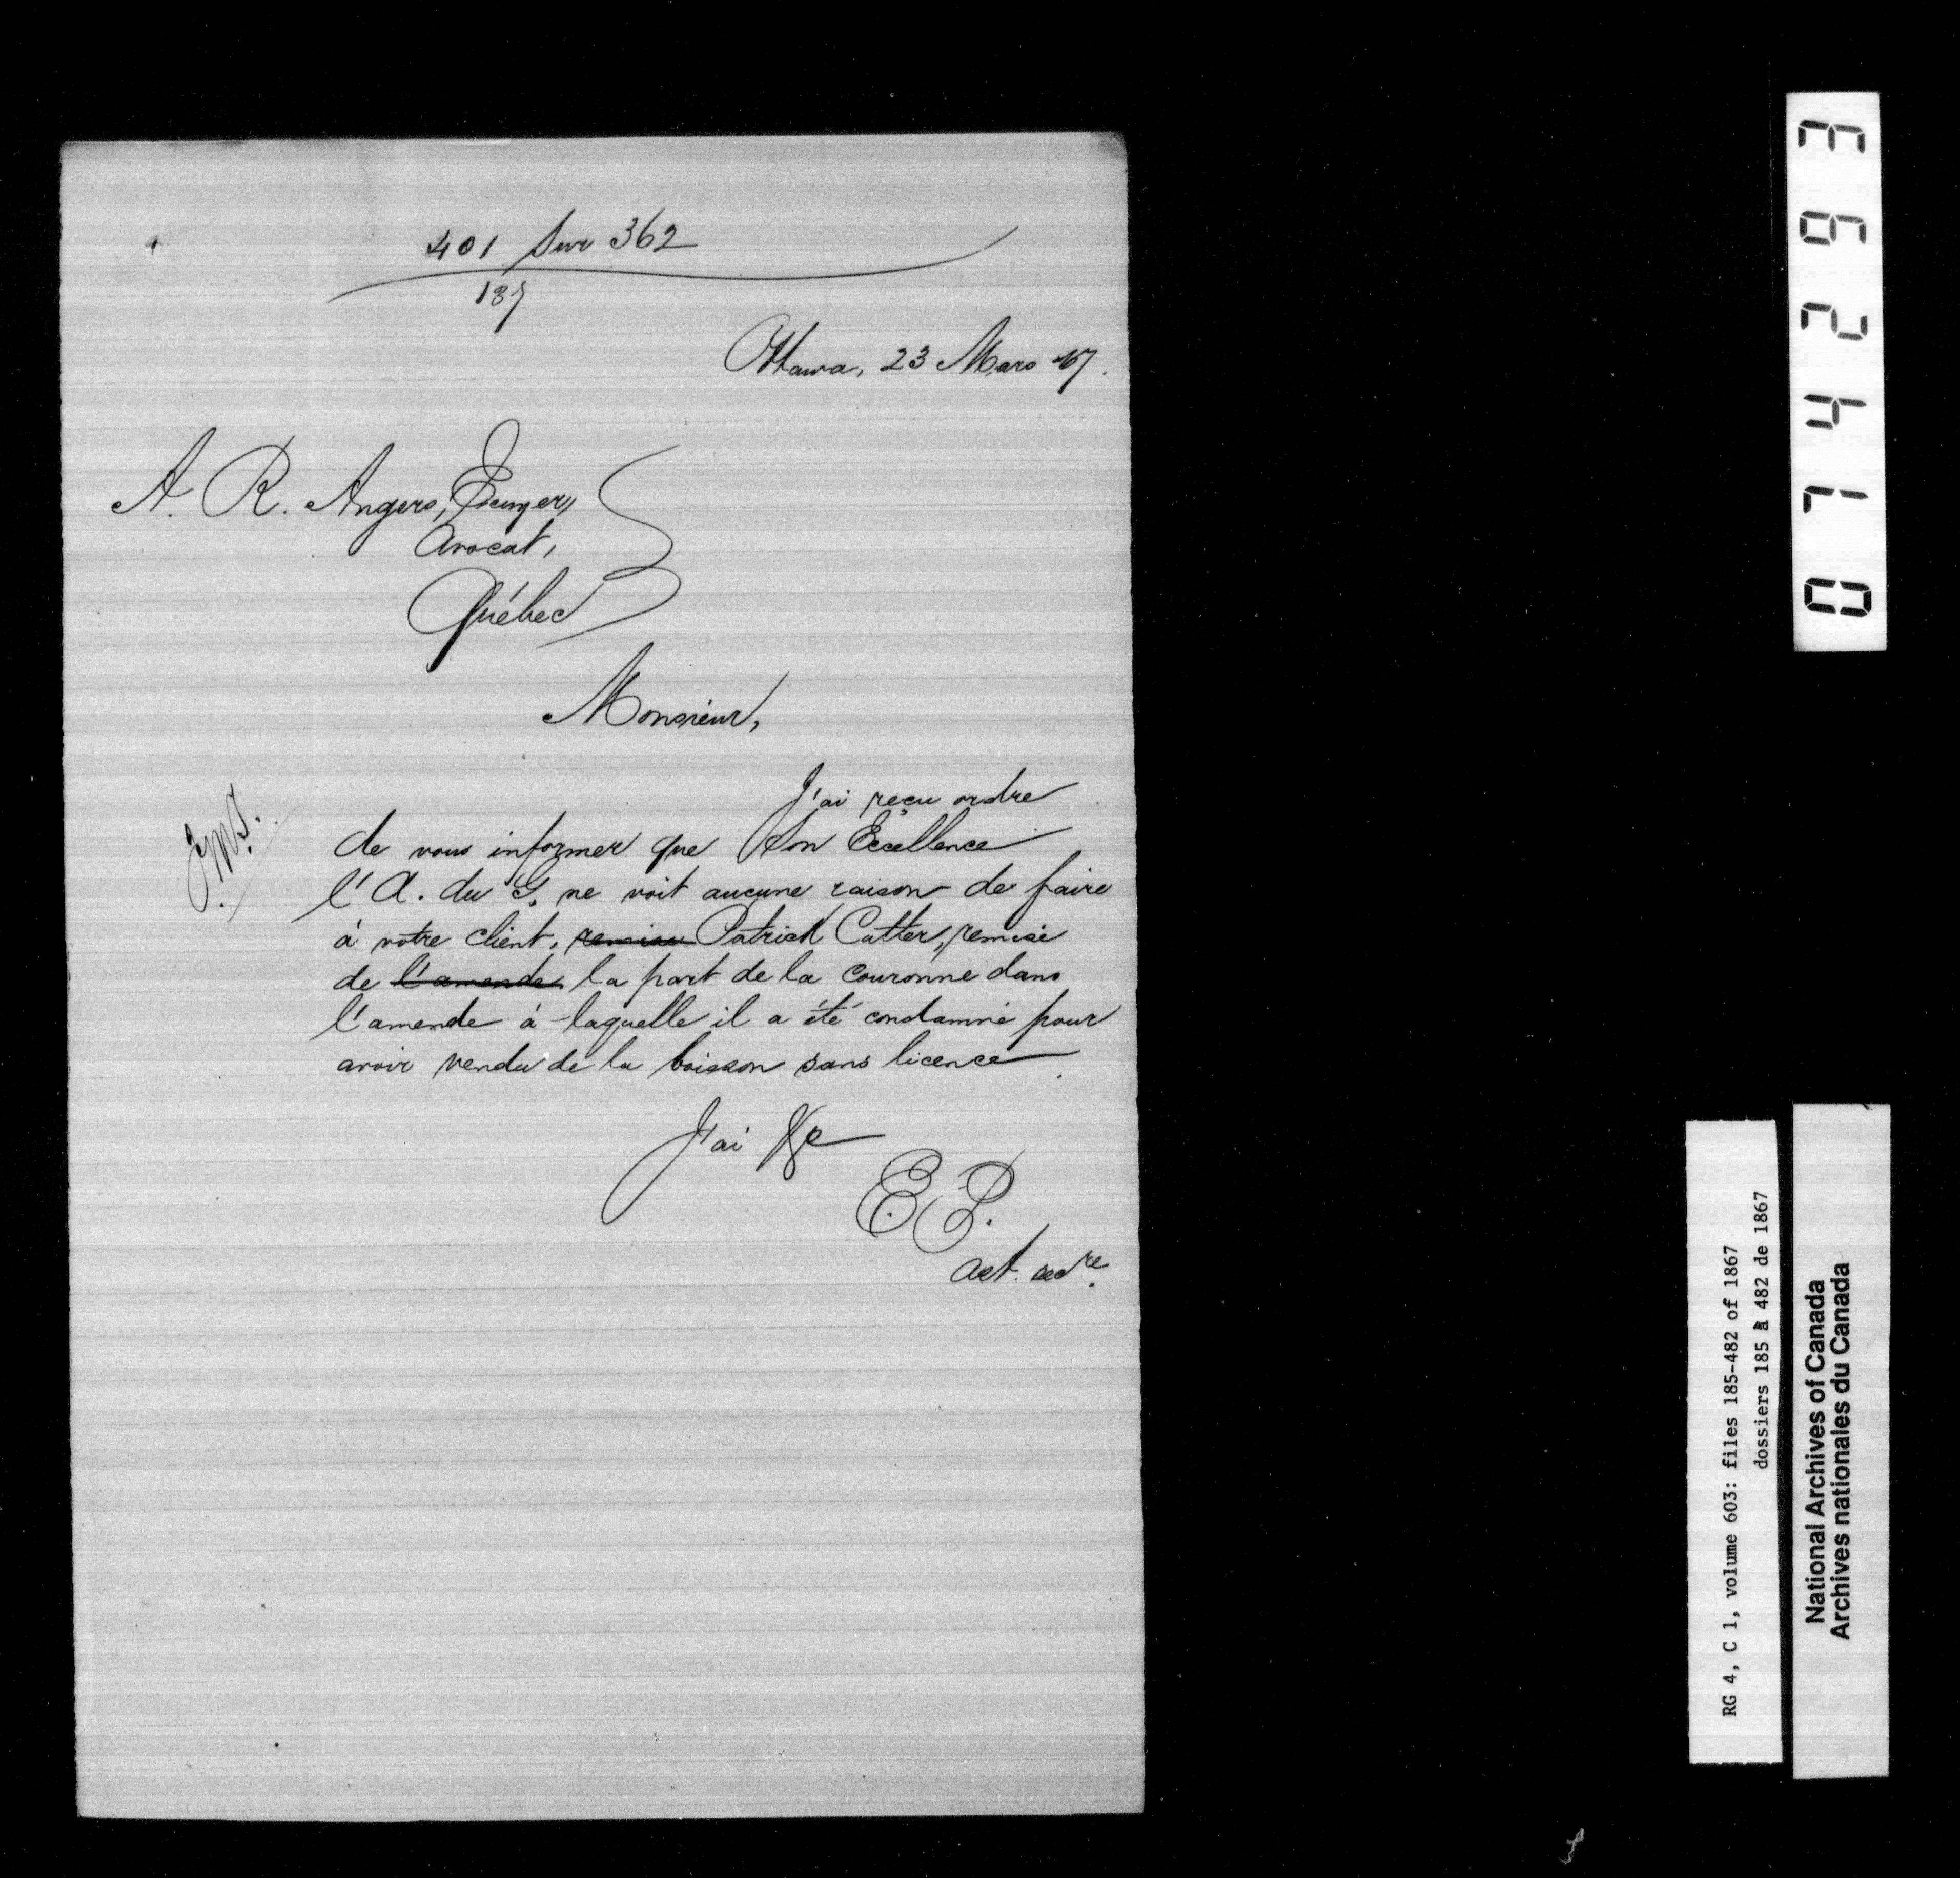 401 Sur 362
137
Ottawa, 23 Mars 67.
A. R. Angers, Écuyer,
Avocat,
Québec
Monsieur,
J'ai reçu ordre
de vous informer que Son Excellence
l'A. du G. ne voit aucune raison de faire
à votre client, remise Patrick Cutter, remise
de l'amende la part de la Couronne dans
l'amende à laquelle il a été condamné pour
avoir vendu de la boisson sans licence.
J'ai &c
E. P.
act. secre.
074293
RG 4, C 1, volume 603: files 185-482 of 1867
dossiers 185 à 482 de 1867
National Archives of Canada
Archives nationales du Canada